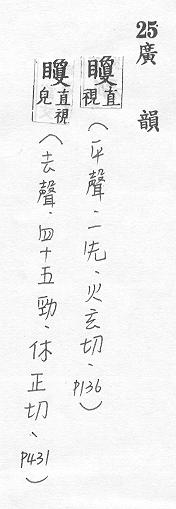 25廣韻
矎直視(平聲、一先、火玄切、p136)
矎直視皃(去聲、四十五勁、休正切、p431)